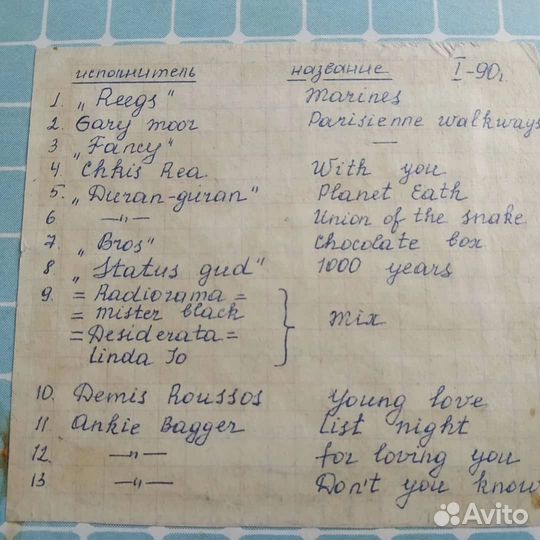 исполнитель название I-90г.
1. „Reegs" Marines
2. Gary moor Parisienne walkways
3 „Fancy" —
4. Chhis Rea. With you
5. „Duran-guran" Planet Eath
6 —"— Union of the snake
7. „Bros" Chocolate box
8. „Status gud" 1000 years
9. = Radiorama =
= mister black
= Desiderata =
linda Jo
mix
10. Demis Roussos Young love
11 Ankie Bagger list night
12 —"— for loving you
13 —"— Don't you know
Avito